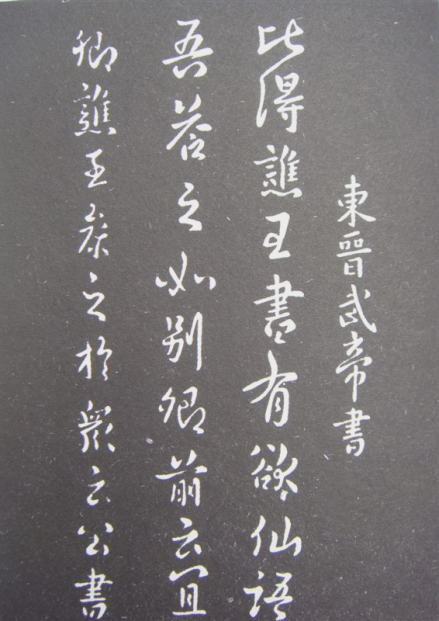 東晉武帝書
比得譙王書有欲仙語
吾答之如別卿前云宜
卿譙王之於衆云公書